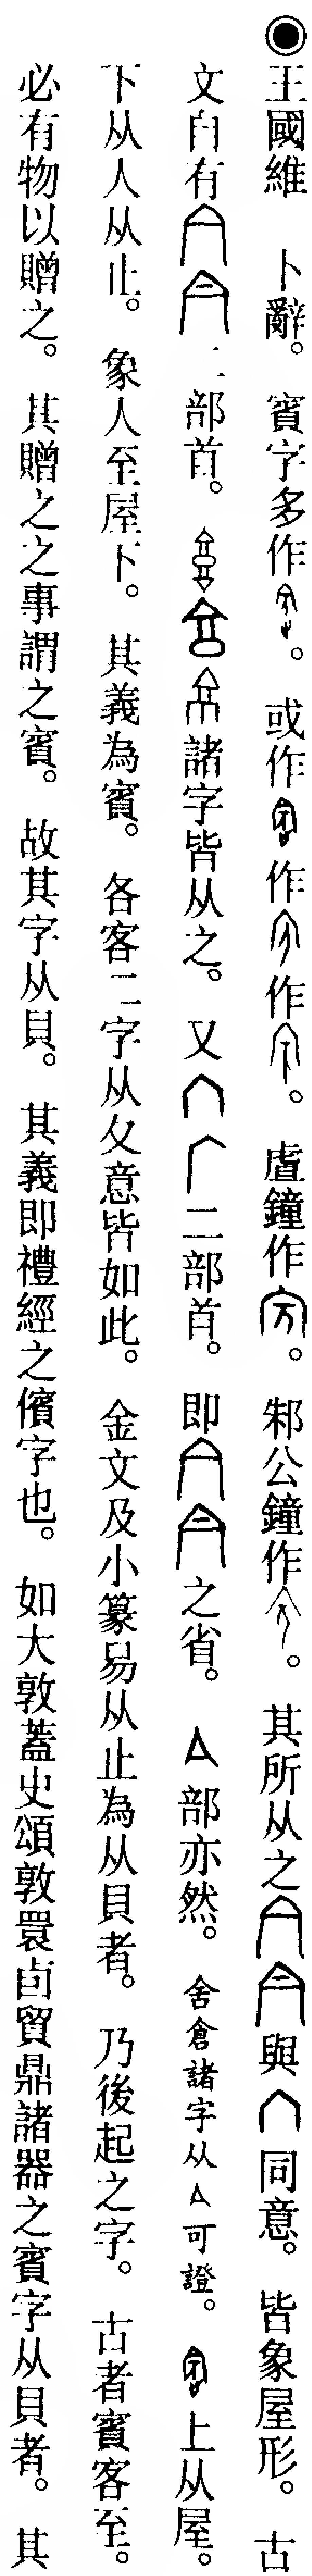 ◉王國維　卜辭。賓字多作。或作作作。虘鐘作。邾公鐘作。其所从之與同意。皆象屋形。古
文自有二部首。諸字皆从之。又二部首。即之省。亼部亦然。舍倉諸字从亼可證。上从屋。
下从人从止。象人至屋下。其義為賓。各客二字从夂意皆如此。金文及小篆易从止為从貝者。乃後起之字。古者賓客至。
必有物以贈之。其贈之之事謂之賓。故其字从貝。其義即禮經之儐字也。如大敦蓋史頌敦睘卣貿鼎諸器之賓字从貝者。其